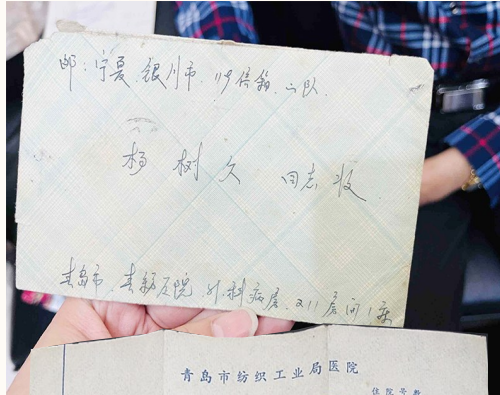 邮:宁夏.银川市.119信箱.二队.
杨树久 同志收
青岛市.青纺医院 外科病房.211房间1床
青岛市纺织工业局医院
住院号数